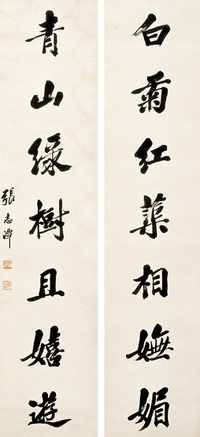 白菊红蕖相嫵媚
青山緑樹且嬉遊
張志潭